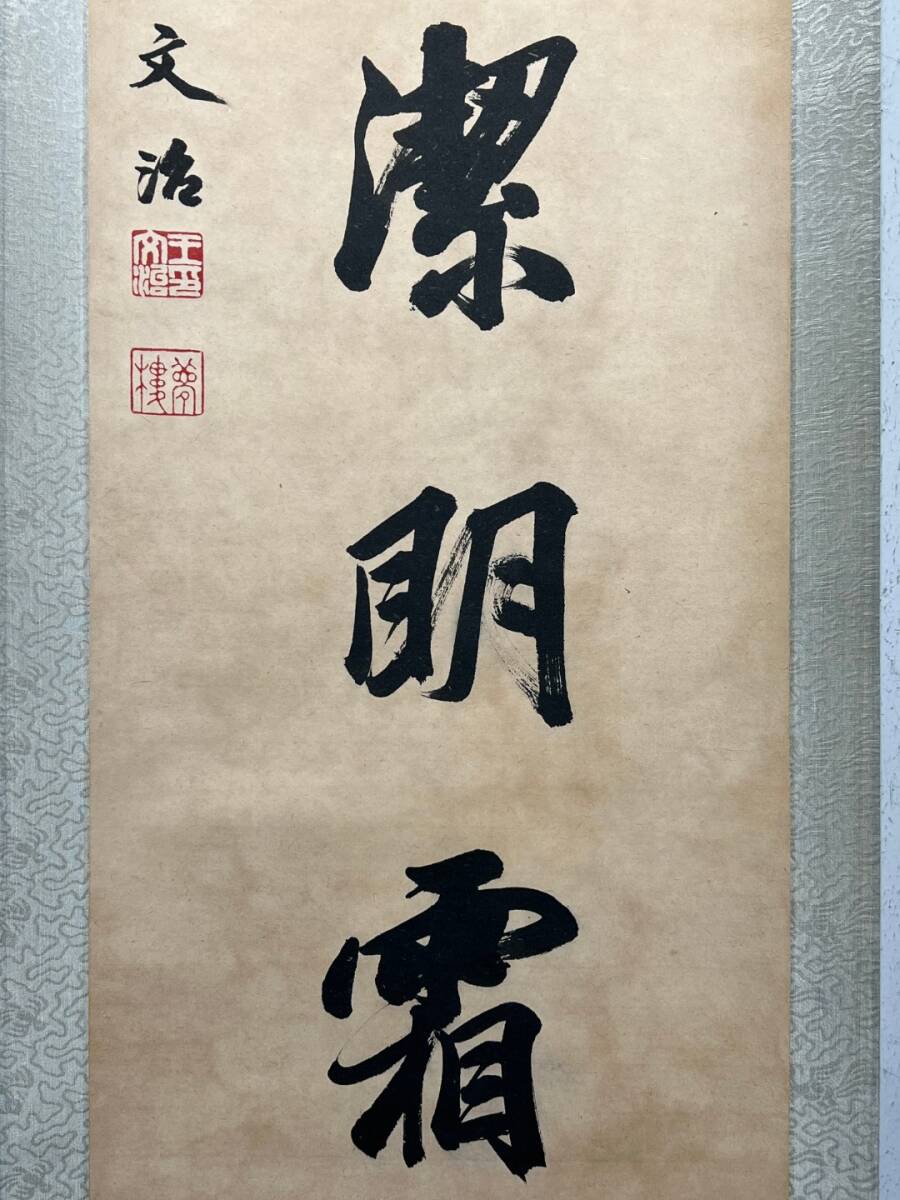 潔明霜
文治
王文治印
夢樓